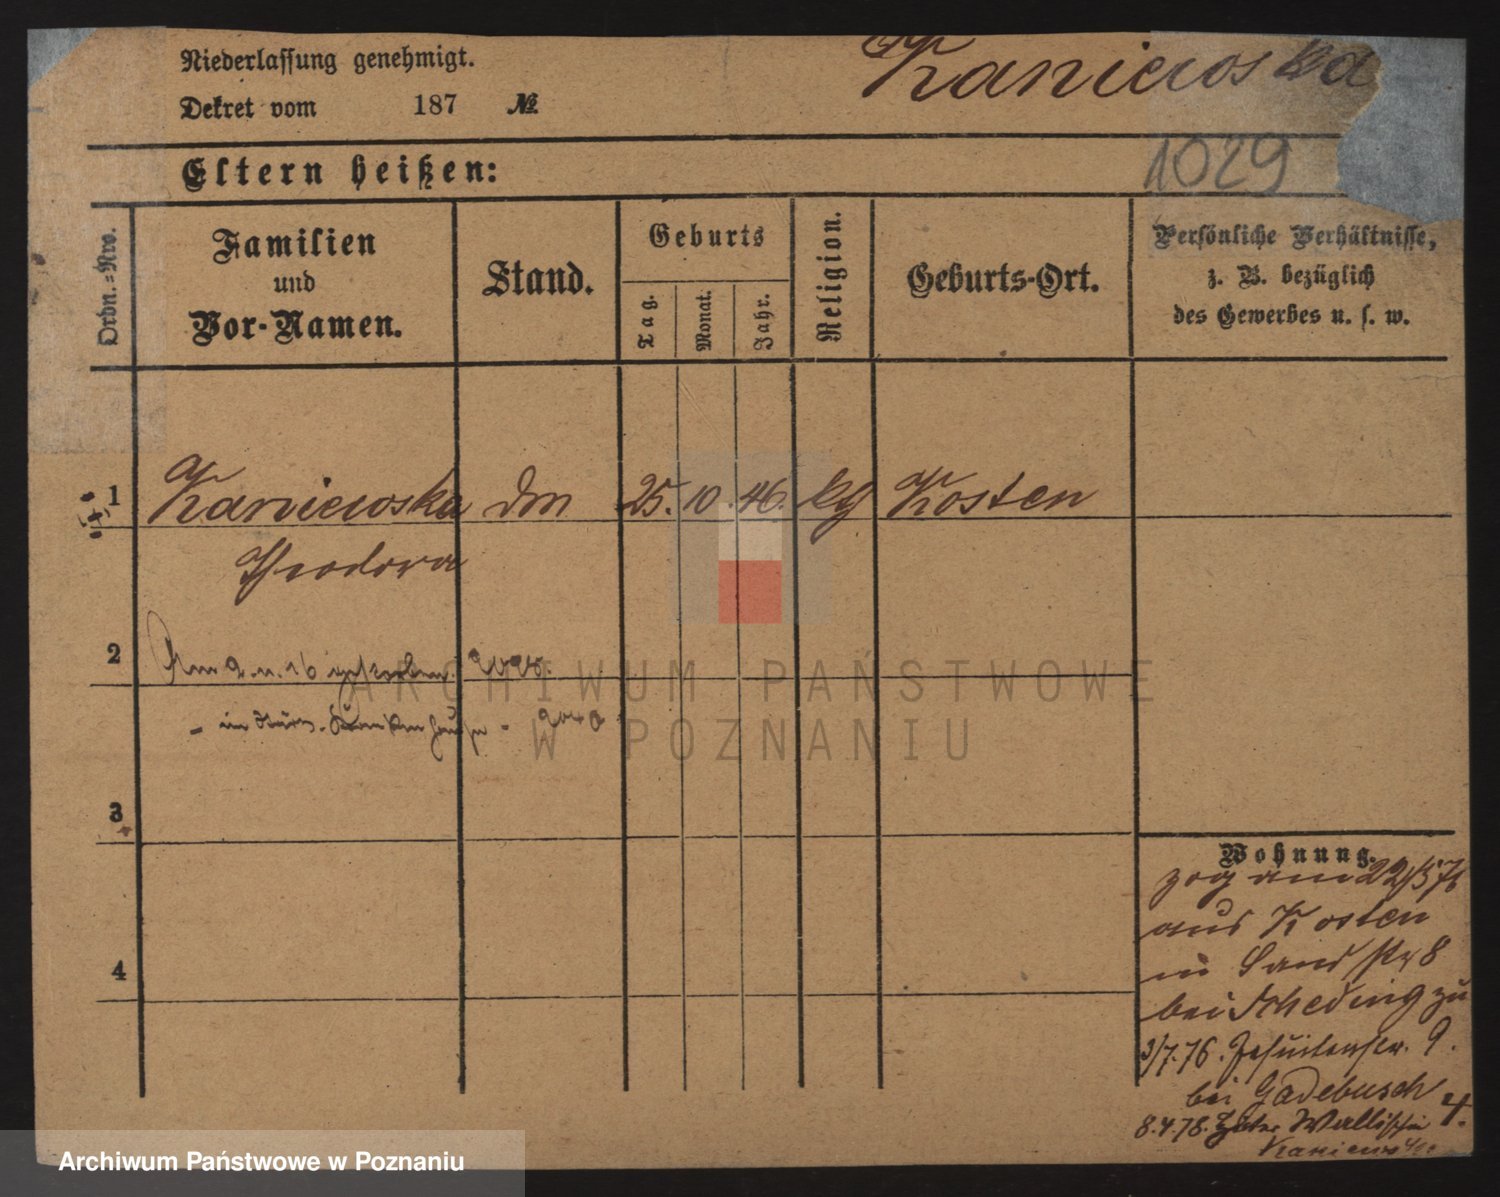 Niederlassung genehmigt.
Dekret vom 187 №
Kaniewska
1029
Eltern heißen:
Ordn.=Nro.
Familien
und
Vor-Namen.
Stand.
Geburts
Tag.
Monat.
Jahr.
Religion.
Geburts-Ort.
Persönliche Verhältnisse,
z. B. bezüglich
des Gewerbes u. s. w.
1 Kaniewska 25. 10. 46. kth Kosten
Theodora
2 Am
3
4
Wohnung.
zog am 22/5 76
aus Kosten
in Sandstr 8
bei Scheding zu
3/7.76. Jesuitenstr. 9.
bei Gadebusch
8.4.78. Hinter Wallischei 4.
Kaniewska
ARCHIWUM PAŃSTWOWE
W POZNANIU
Archiwum Państwowe w Poznaniu